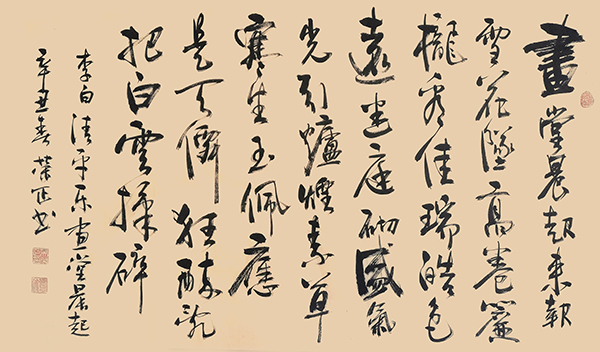 畫堂晨起来報
雪花墜高卷簾
櫳看佳瑞皓色
遠迷庭砌盛氣
光引爐煙素草
寒生玉佩應
是天僊狂醉乱
把白雲揉碎
李白清平乐畫堂晨起
辛丑春荣书